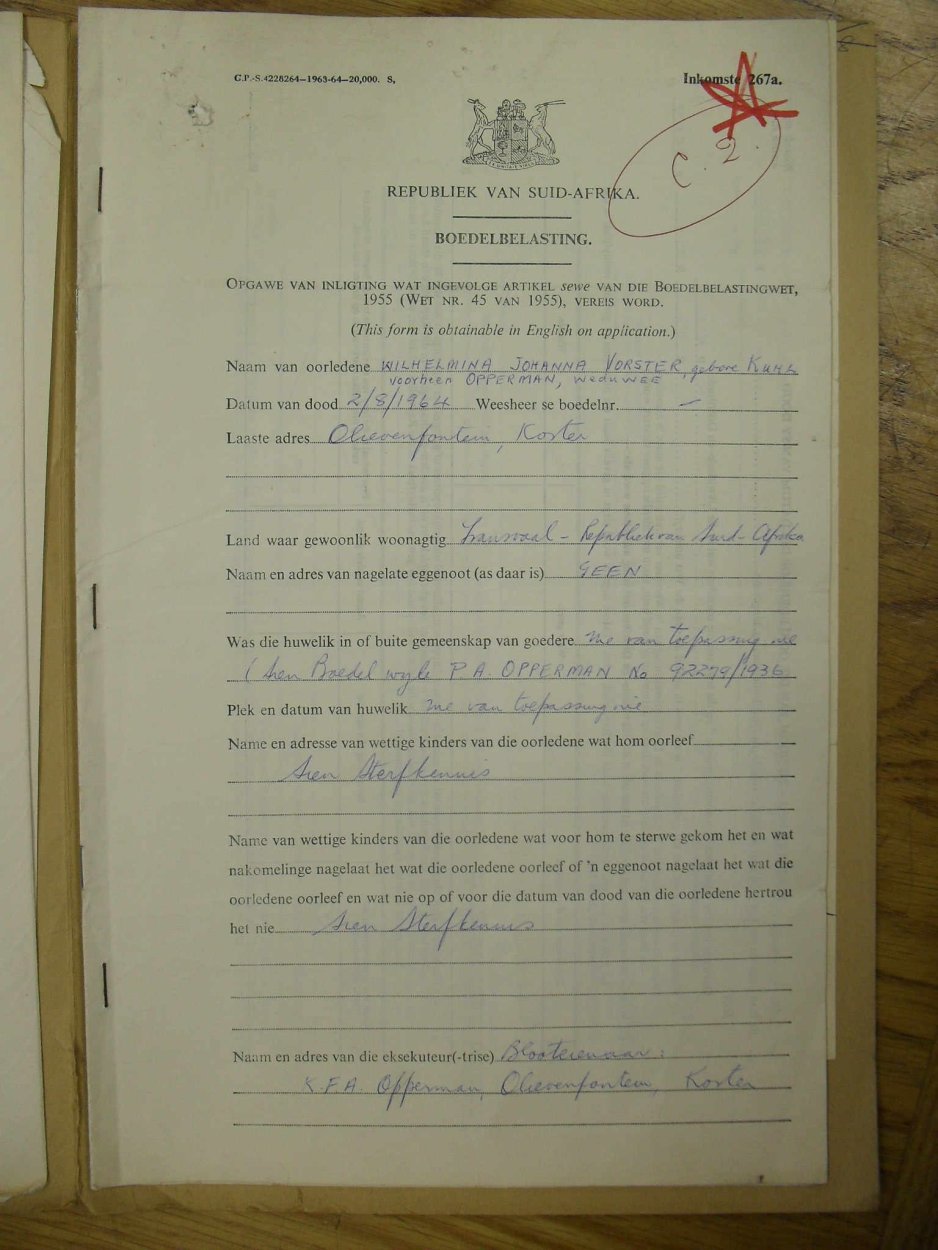 G.P.-S.4228264—1963-64—20,000. S,
Inkomste 267a.
C.2.
REPUBLIEK VAN SUID-AFRIKA.
BOEDELBELASTING.
OPGAWE VAN INLIGTING WAT INGEVOLGE ARTIKEL sewe VAN DIE BOEDELBELASTINGWET,
1955 (WET NR. 45 VAN 1955), VEREIS WORD.
(This form is obtainable in English on application.)
Naam van oorledene WILHELMINA JOHANNA VORSTER, gebore KUHL
voorheen OPPERMAN, WEDUWEE
Datum van dood 2/8/1964 Weesheer se boedelnr. —
Laaste adres Olievenfontein, Koster
Land waar gewoonlik woonagtig Transvaal - Republiek van Suid-Afrika
Naam en adres van nagelate eggenoot (as daar is) GEEN
Was die huwelik in of buite gemeenskap van goedere nie van toepassing nie
(Sien Boedel wyle P A. OPPERMAN No 92279/1936
Plek en datum van huwelik nie van toepassing nie
Name en adresse van wettige kinders van die oorledene wat hom oorleef
Sien Sterfkennis
Name van wettige kinders van die oorledene wat voor hom te sterwe gekom het en wat
nakomelinge nagelaat het wat die oorledene oorleef of 'n eggenoot nagelaat het wat die
oorledene oorleef en wat nie op of voor die datum van dood van die oorledene hertrou
het nie Sien Sterfkennis
Naam en adres van die eksekuteur(-trise)
F.A. Opperman, Olievenfontein, Koster